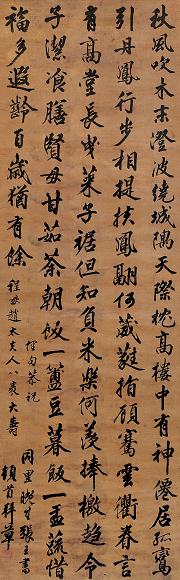 秋風吹木末澄波繞城隅天際枕高樓中有神僊居孤鸞
引丹鳳行步相提扶鳳翮何葳蕤指顧騫雲衢眷言
有高堂長曳萊子裾但知負米樂何羨捧檄趨令
子潔飡膳賢母甘茹荼朝飯一簋豆暮飯一盂蔬惜
福多遐齡百歲猶有餘
俚句恭祝
程母趙太夫人八袠大壽
同里晚生張玉書
頓首拜草